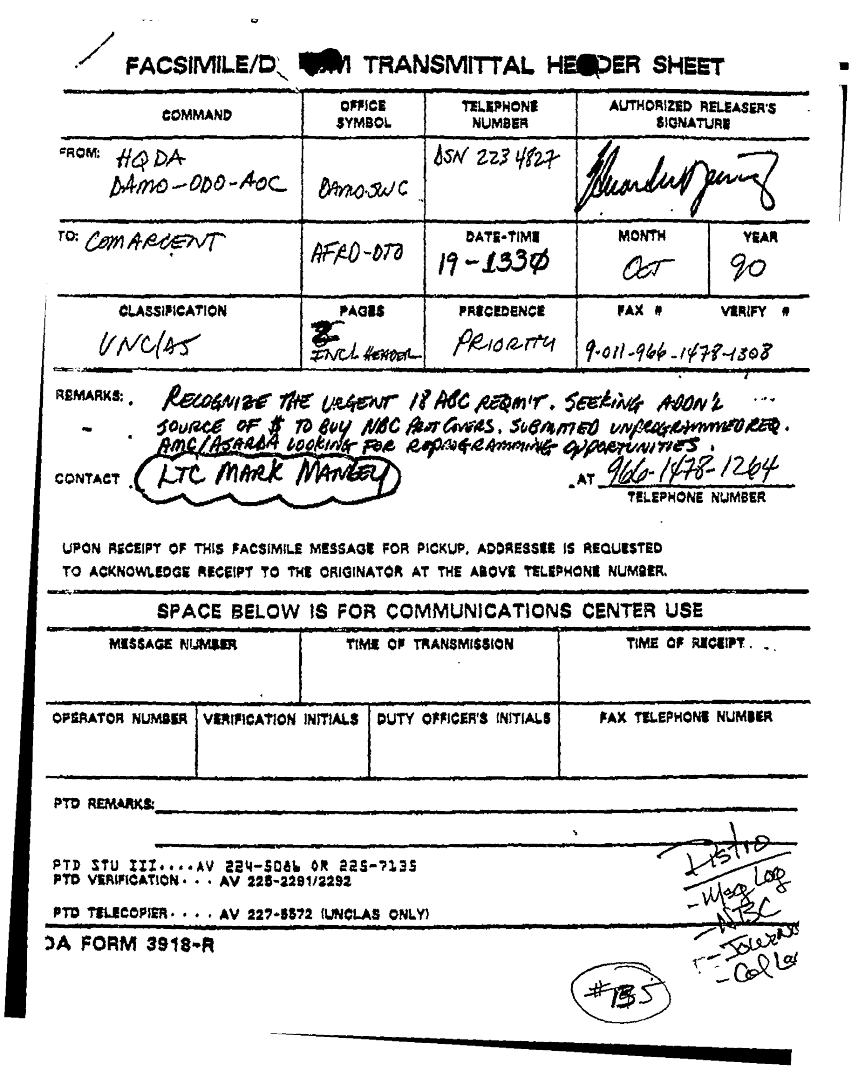 FACSIMILE/D TRANSMITTAL HEADER SHEET
COMMAND
OFFICE SYMBOL
TELEPHONE NUMBER
AUTHORIZED RELEASER'S SIGNATURE
FROM: HQDA
DAMO-ODO-AOC
DAMO-SWC
DSN 223 4827
TO: COMARCENT
AFRD-DTO
DATE-TIME
19-1330
MONTH
OCT
YEAR
90
CLASSIFICATION
UNCLAS
PAGES
2
INCL HEADER
PRECEDENCE
PRIORITY
FAX # VERIFY #
9-011-966-1478-1308
REMARKS: RECOGNIZE THE URGENT 18 ABC REQM'T. SEEKING ADDN'L
SOURCE OF $ TO BUY NBC PROT COVERS. SUBMITTED UNPROGRAMMED REQ.
AMC/ASARDA LOOKING FOR REPROGRAMMING OPPORTUNITIES.
CONTACT LTC MARK MANGEY AT 966-1478-1264
TELEPHONE NUMBER
UPON RECEIPT OF THIS FACSIMILE MESSAGE FOR PICKUP, ADDRESSEE IS REQUESTED
TO ACKNOWLEDGE RECEIPT TO THE ORIGINATOR AT THE ABOVE TELEPHONE NUMBER.
SPACE BELOW IS FOR COMMUNICATIONS CENTER USE
MESSAGE NUMBER
TIME OF TRANSMISSION
TIME OF RECEIPT
OPERATOR NUMBER
VERIFICATION INITIALS
DUTY OFFICER'S INITIALS
FAX TELEPHONE NUMBER
PTD REMARKS:
PTD STU III.... AV 224-5086 OR 225-7135
PTD VERIFICATION . . . AV 225-2291/2292
PTD TELECOPIER . . . . AV 227-5572 (UNCLAS ONLY)
DA FORM 3918-R
Distro
- Msg Log
- NBC
- Journo
- Col
#135